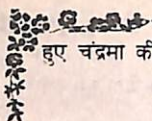 हुए चंद्रमा की